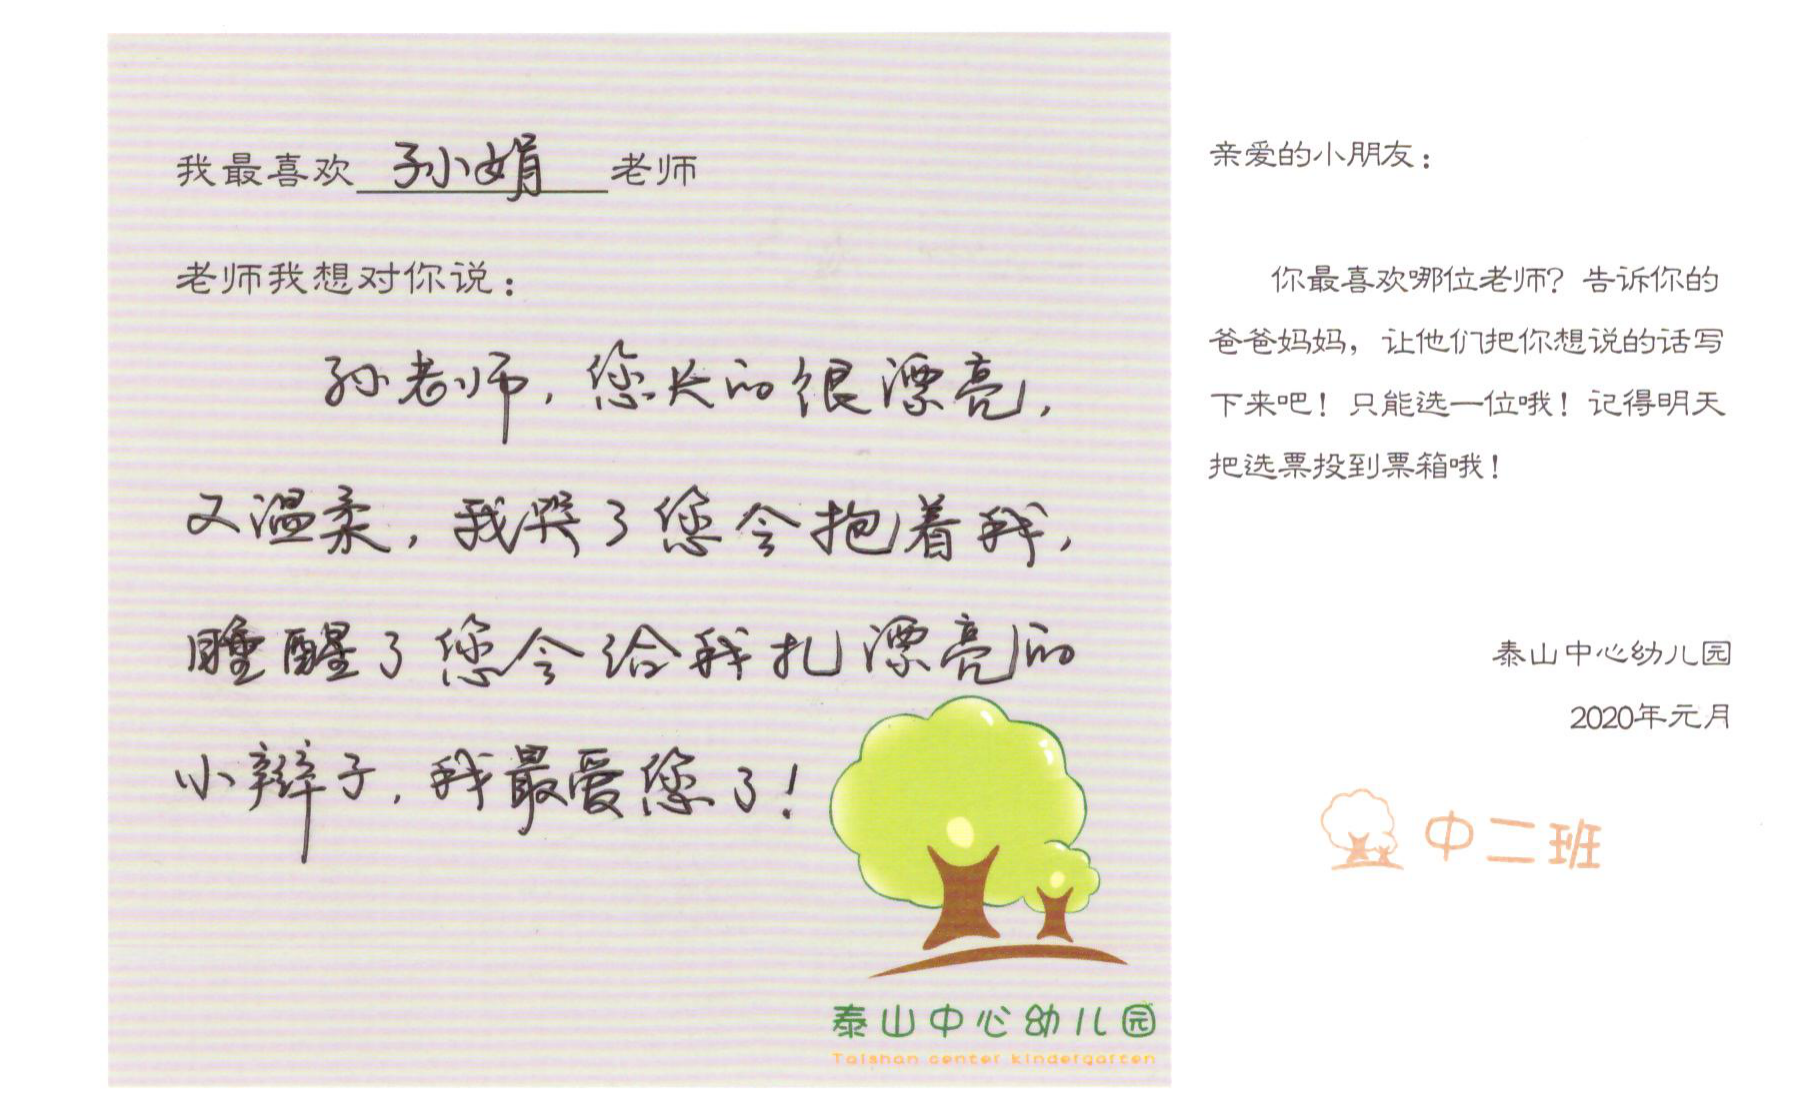 我最喜欢 孙小娟 老师
老师我想对你说：
孙老师，您长的很漂亮，
又温柔，我哭了您会抱着我，
睡醒了您会给我扎漂亮的
小辫子，我最爱您了！
泰山中心幼儿园
Taishan center kindergarten
亲爱的小朋友：
你最喜欢哪位老师？告诉你的
爸爸妈妈，让他们把你想说的话写
下来吧！只能选一位哦！记得明天
把选票投到票箱哦！
泰山中心幼儿园
2020年元月
中二班